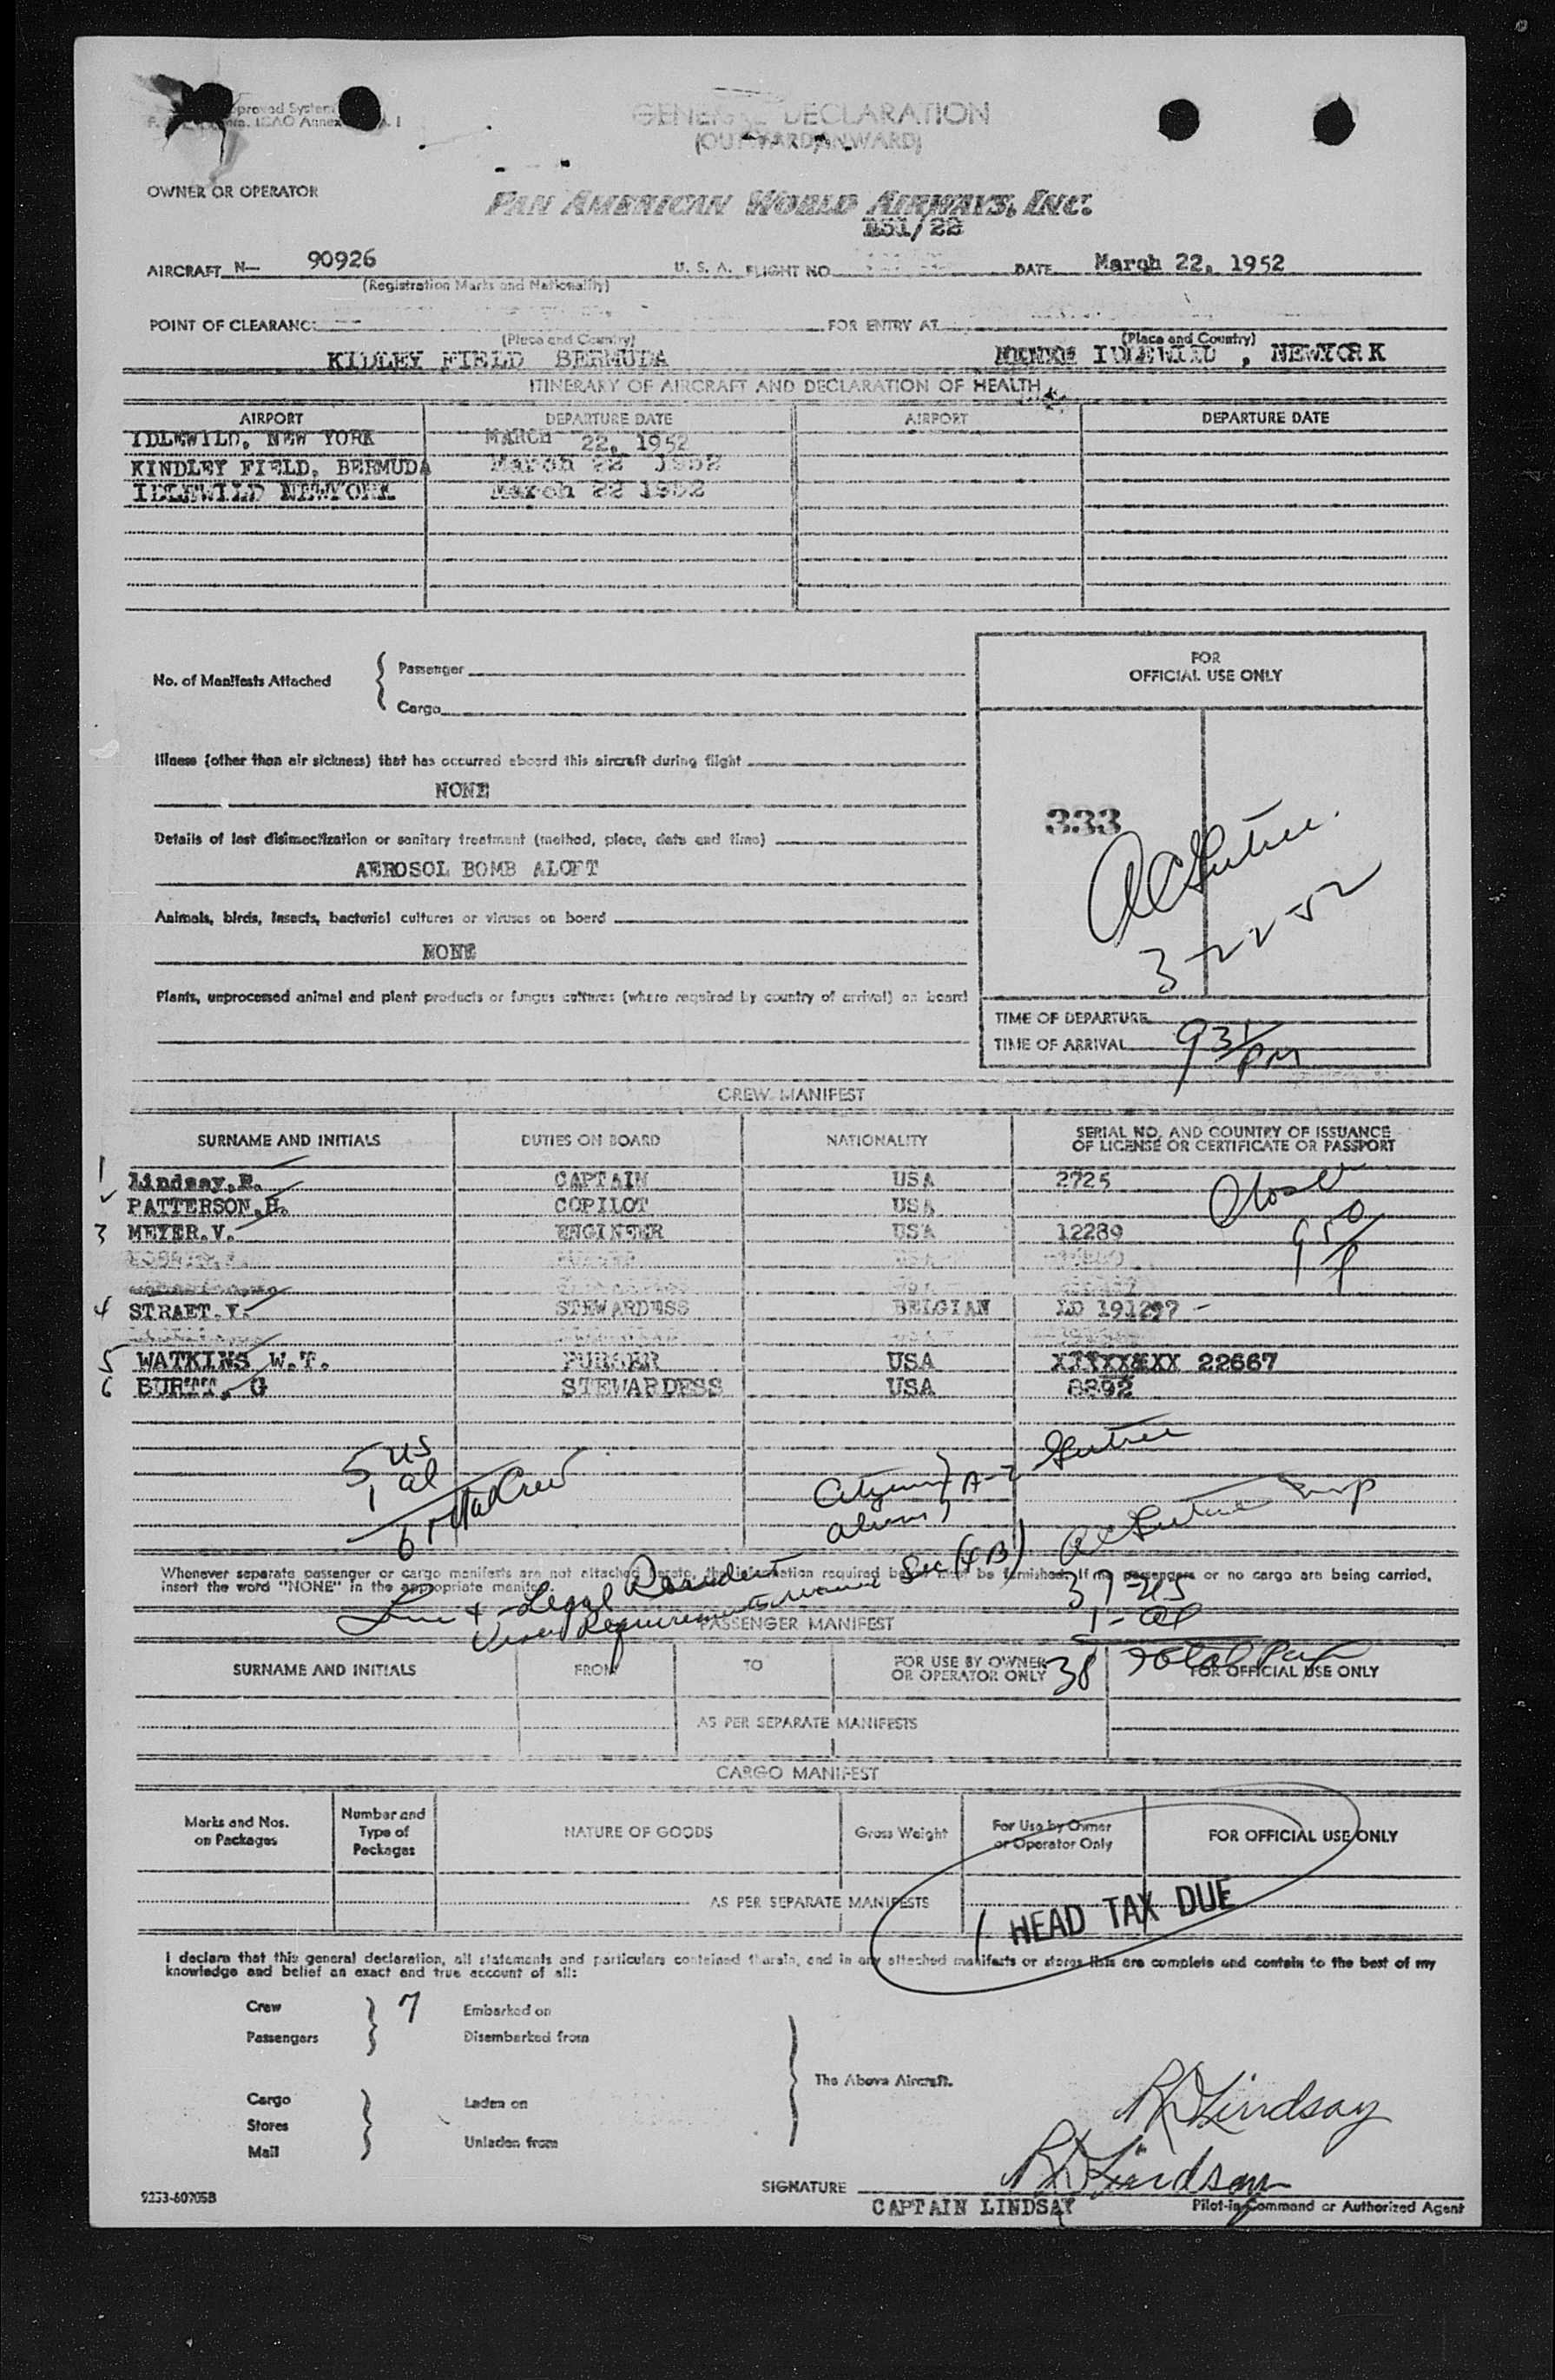 GENERAL DECLARATION
(OUTWARD/INWARD)
OWNER OR OPERATOR PAN AMERICAN WORLD AIRWAYS, INC.
131/22
AIRCRAFT N— 90926 U. S. A. FLIGHT NO DATE March 22, 1952
(Registration Marks and Nationality)
POINT OF CLEARANCE FOR ENTRY AT
(Place and Country) (Place and Country)
KIDLEY FIELD BERMUDA IDLEWILD , NEWYORK
ITINERARY OF AIRCRAFT AND DECLARATION OF HEALTH
AIRPORT DEPARTURE DATE AIRPORT DEPARTURE DATE
IDLEWILD, NEW YORK MARCH 22, 1952
KINDLEY FIELD, BERMUDA March 22 1952
IDLEWILD NEWYORK March 22 1952
FOR
OFFICIAL USE ONLY
No. of Manifests Attached
Passenger
Cargo
Illness (other than air sickness) that has occurred aboard this aircraft during flight
NONE
333
Details of last disinsectization or sanitary treatment (method, place, date and time)
AEROSOL BOMB ALOFT
Animals, birds, insects, bacterial cultures or viruses on board
3-22-52
NONE
Plants, unprocessed animal and plant products or fungus cultures (where required by country of arrival) on board
TIME OF DEPARTURE
TIME OF ARRIVAL 931 PM
CREW MANIFEST
SURNAME AND INITIALS DUTIES ON BOARD NATIONALITY SERIAL NO. AND COUNTRY OF ISSUANCE
OF LICENSE OR CERTIFICATE OR PASSPORT
1 Lindsay.R. CAPTAIN USA 2725
PATTERSON.H. COPILOT USA
3 MEYER.V. ENGINEER USA 12289
4 STRAET.Y. STEWARDESS BELGIAN LD 191297 -
5 WATKINS W.T. PURSER USA 22667
6 BURTT. G STEWARDESS USA 8892
5 US
1 al
6 Total Crew
Citizens } A-2
Aliens
Whenever separate passenger or cargo manifests are not attached hereto, the information required below must be furnished. If no passengers or no cargo are being carried,
insert the word "NONE" in the appropriate manifest.
Line 4 - Legal Resident
Visa Requirements Waived Sec (4B)
37-US
1-al
38 Total Pass
PASSENGER MANIFEST
SURNAME AND INITIALS FROM TO FOR USE BY OWNER
OR OPERATOR ONLY FOR OFFICIAL USE ONLY
AS PER SEPARATE MANIFESTS
CARGO MANIFEST
Marks and Nos.
on Packages Number and
Type of
Packages NATURE OF GOODS Gross Weight For Use by Owner
or Operator Only FOR OFFICIAL USE ONLY
AS PER SEPARATE MANIFESTS
1 HEAD TAX DUE
I declare that this general declaration, all statements and particulars contained therein, and in any attached manifests or stores lists are complete and contain to the best of my
knowledge and belief an exact and true account of all:
Crew 7 Embarked on
Passengers Disembarked from
The Above Aircraft.
Cargo Laden on
Stores
Mail Unladen from
RD Lindsay
RD Lindsay
SIGNATURE
CAPTAIN LINDSAY Pilot-in-Command or Authorized Agent
9233-60705B